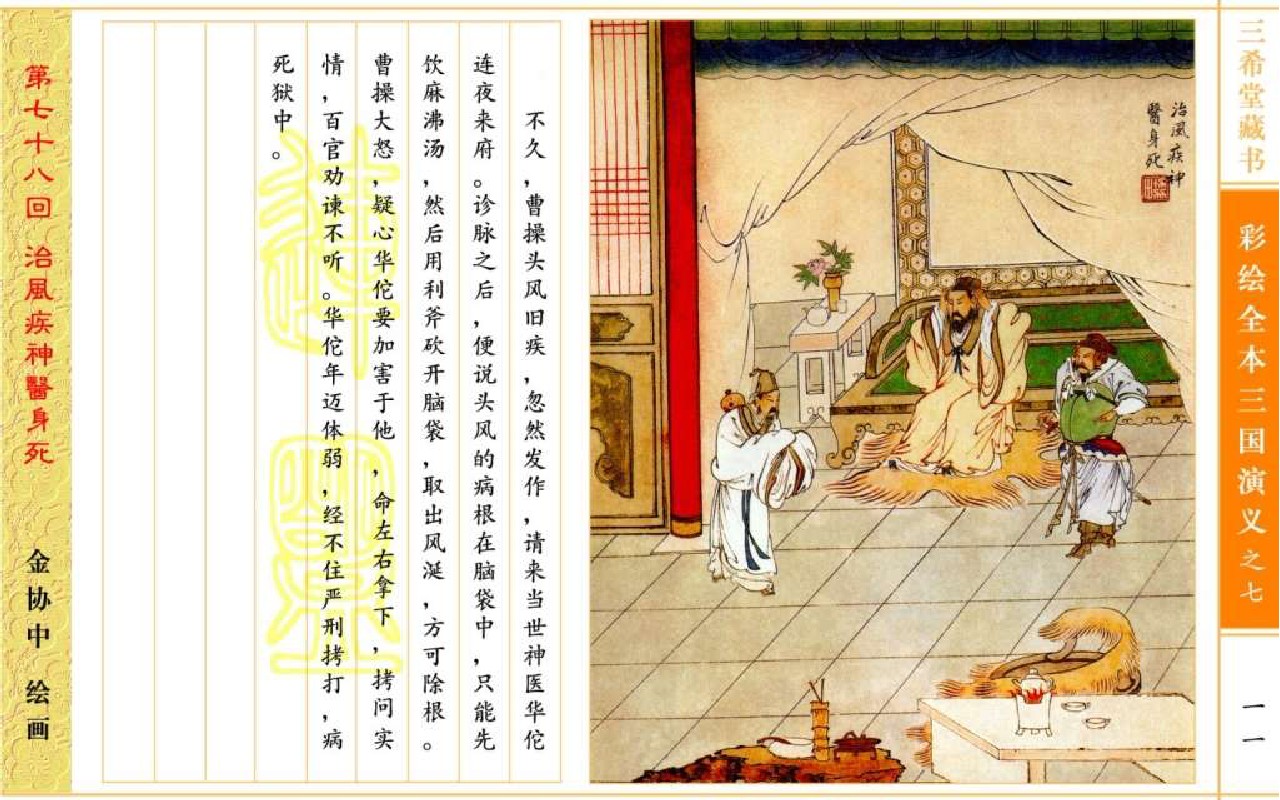 三希堂藏书
彩绘全本三国演义之七
一一
治風疾神
醫身死
不久，曹操头风旧疾，忽然发作，请来当世神医华佗
连夜来府。诊脉之后，便说头风的病根在脑袋中，只能先
饮麻沸汤，然后用利斧砍开脑袋，取出风涎，方可除根。
曹操大怒，疑心华佗要加害于他，命左右拿下，拷问实
情，百官劝谏不听。华佗年迈体弱，经不住严刑拷打，病
死狱中。
第七十八回 治風疾神醫身死
金协中 绘画